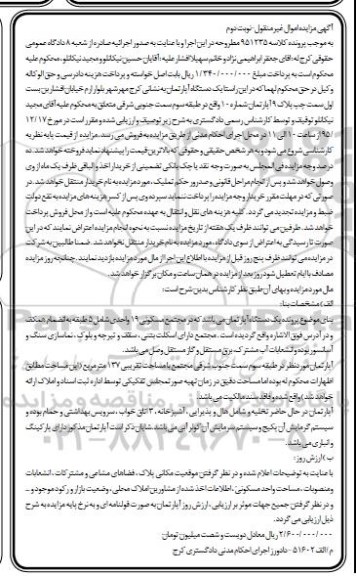 آگهی مزایده اموال غیر منقول - نوبت دوم
به موجب پرونده کلاسه ۹۵۱۲۳۵ مطروحه در این اجرا و با عنایت به صدور اجرائیه صادره از شعبه ۸ دادگاه عمومی
حقوقی کرج له: آقای جعفر ابراهیمی نژاد و خانم سهیلا افشار علیه: آقایان حسین نیکانلو و مجید نیکانلو، محکوم علیه
محکوم است به پرداخت مبلغ ۱/۳۴۰/۰۰۰/۰۰۰ ریال بابت اصل خواسته و پرداخت هزینه دادرسی و حق الوکاله
وکیل در حق محکوم لهما که در این راستا یک دستگاه آپارتمان به نشانی کرج مهرشهر بلوار ارم خیابان افشارین بست
اول سمت چپ پلاک ۱۹ آپارتمان شماره ۱۰ واقع در طبقه سوم سمت جنوبی شرقی متعلق به محکوم علیه آقای مجید
نیکانلو توقیف و توسط کارشناس رسمی دادگستری به شرح زیر توصیف و ارزیابی شده و مقرر است در مورخ ۱۲/۱۷
/۹۵ از ساعت ۱۰ الی ۱۱ در محل اجرای احکام مدنی از طریق مزایده به فروش می رسد. مزایده از قیمت پایه نظریه
کارشناسی شروع می شود و به هر شخص حقیقی و حقوقی که بالاترین قیمت را پیشنهاد نماید فروخته خواهد شد. ده
درصد وجه مزایده فی المجلس به صورت وجه نقد یا چک بانکی تضمینی از خریدار اخذ و الباقی ظرف یک ماه از وی
وصول خواهد شد و پس از انجام مراحل قانونی و صدور حکم تملیک، مورد مزایده به نام خریدار منتقل خواهد شد. در
صورتی که در مهلت مقرر خریدار وجه مزایده را پرداخت ننماید سپرده وی پس از کسر هزینه های مزایده به نفع دولت
ضبط و مزایده تجدید می گردد. کلیه هزینه های نقل و انتقال به عهده محکوم علیه است و از محل فروش پرداخت
خواهد شد. طرفین می توانند ظرف یک هفته از تاریخ مزایده نسبت به نحوه انجام مزایده اعتراض نمایند که در این
صورت تا رسیدگی به اعتراض از سوی دادگاه، مورد مزایده به نام خریدار منتقل نخواهد شد. ضمنا طالبین به شرکت
در مزایده می توانند ظرف پنج روز قبل از مزایده با اطلاع این اجرا از مال مورد مزایده بازدید نمایند. چنانچه روز مزایده
مصادف با ایام تعطیل شود روز بعد از مزایده در همان ساعت و مکان برگزار خواهد شد.
مال مورد مزایده و بهای آن طبق نظر کارشناس بدین شرح است:
الف) مشخصات بنا:
بنای موضوع پرونده یک دستگاه آپارتمان می باشد که در مجتمع مسکونی ۱۹ واحدی شامل ۵ طبقه به انضمام همکف
و در آدرس فوق الاشاره واقع گردیده است. مجتمع دارای اسکلت بتنی، سقف و تیرچه و بلوک، نماسازی سنگ و
آسانسور بوده و انشعابات آب مشترک، برق مستقل و گاز مستقل وصل می باشد.
آپارتمان مورد نظر در طبقه سوم سمت جنوب شرقی مجتمع با مساحت تقریبی ۱۳۷ متر مربع (این مساحت مطابق
اظهارات محکوم له بوده اما مساحت دقیق در زمان تهیه صورتمجلس تفکیکی توسط اداره ثبت اسناد و املاک ارائه
خواهد شد) واقع شده و فاقد سند مالکیت می باشد.
آپارتمان در حال حاضر تخلیه و شامل هال و پذیرایی، آشپزخانه، ۳ اتاق خواب، سرویس بهداشتی و حمام بوده و
سیستم گرمایش آن پکیج و سیستم سرمایش آن کولر آبی می باشد. شایان ذکر است آپارتمان مذکور دارای پارکینگ
و انباری می باشد.
ب) ارزش روز:
با عنایت به توضیحات اعلام شده و در نظر گرفتن موقعیت مکانی پلاک، فضاهای مشاعی و مشترکات، انشعابات
ومنصوبات، مساحت واحد مسکونی، اطلاعات اخذ شده از مشاورین املاک محلی، وضعیت بازار و رکود موجود و ...
و در نظر گرفتن جمیع جهات موثر بر ارزیابی، ارزش روز آپارتمان به صورت قولنامه ای و به نرخ پایه مزایده به شرح
ذیل ارزیابی می گردد.
۲/۶۰۰/۰۰۰/۰۰۰ ریال معادل دویست و شصت میلیون تومان
م الف ۵۱۶۰۲ - دادورز اجرای احکام مدنی دادگستری کرج